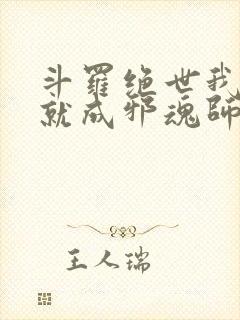 斗羅絕世我
就成邪魂師
王人瑞